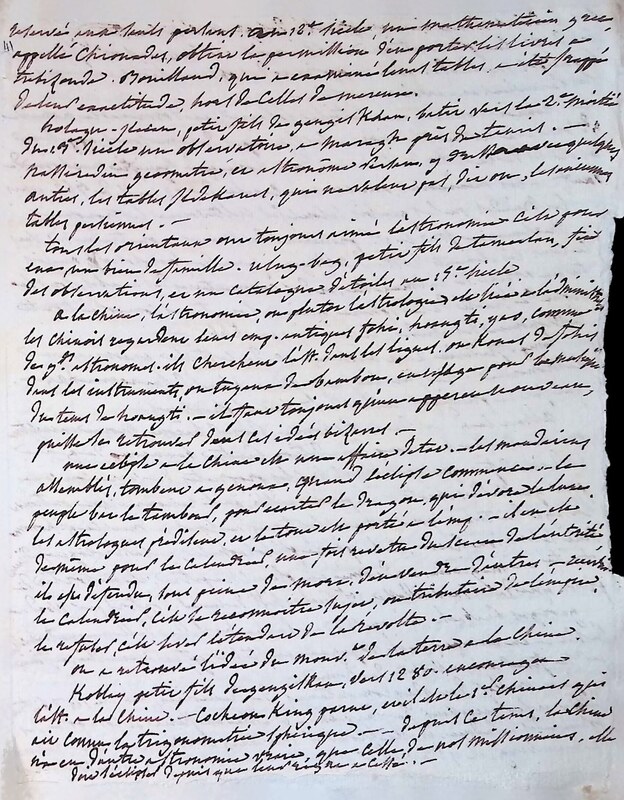 reservés aux seuls persans. au 12e siècle, un mathematicien grec,
appellé Chioniades, obtint la permission d'emporter les livres a
trebizonde. Bouillaud, qui a examiné leurs tables, a eté frappé
de leur exactitude, hors de celles de mercure.
holagu- petit fils de gengiskan, batir vers le 2e moitié
du 13e siècle un observatoire, a maragh près de tauris. —
Nassiredin geometre, et astronome persan, y quelques
autres, les tables ilekhanes, qui ne valent pas, dit on, les anciennes
tables persiennes. —
tous les orientaux ont toujours aimé l'astronomie c'éte pour
eux un bien de famille. ulug-beg, petit fils de tamerlan, fit
des observations, et un catalogue d'étoiles au 15e siecle
a la chine, l'astronomie, ou plutot l'astrologie est liée a l'administ
les chinois regardent leurs emp. antiques fohi, hoangti, yao, comme
de gds astronomes. ils cherchent l'ast. dans les lignes. ou Konas de fohi
dans les instruments, ou tuyaux de bambou, en usage pour la musique
du tems de hoangti. — il faut toujours qu'un apperçu nouveau,
puisse se retrouver dans ces idées bizarres. —
une eclipse a la chine est une affaire d'etat. — les mandarins
assemblés, tombent a genoux, quand l'éclipse commence. — le
peuple bat le tambour, pour écarter le dragon, qui dévore la lune
les astrologues prédisent, et le tout est porté a l'emp. — il en est
de même pour le calendrier, une fois revetu du sceau de l'autorité
il est défendu, sous peine de mort, d'en vendre d'autres —
le calendrier, c'est se reconnoitre sujet, ou tributaire de l'empire
le refuser c'est lever l'etendard de la revolte. —
on a retrouvé l'idée du mouv.t de la terre a la chine.
Koblay petit fils de gengiskan, vers 1280. encouragea
l'ast. a la chine. — Cocheou King parut, et c'est le 1er chinois qui
ait connu la trigonometrie sphérique — depuis ce tems, la chine
n'a eu d'autre astronomie vraie, que celle, de nos missionnaires, elle
d'éclipses depuis que leur règne a cessé. —